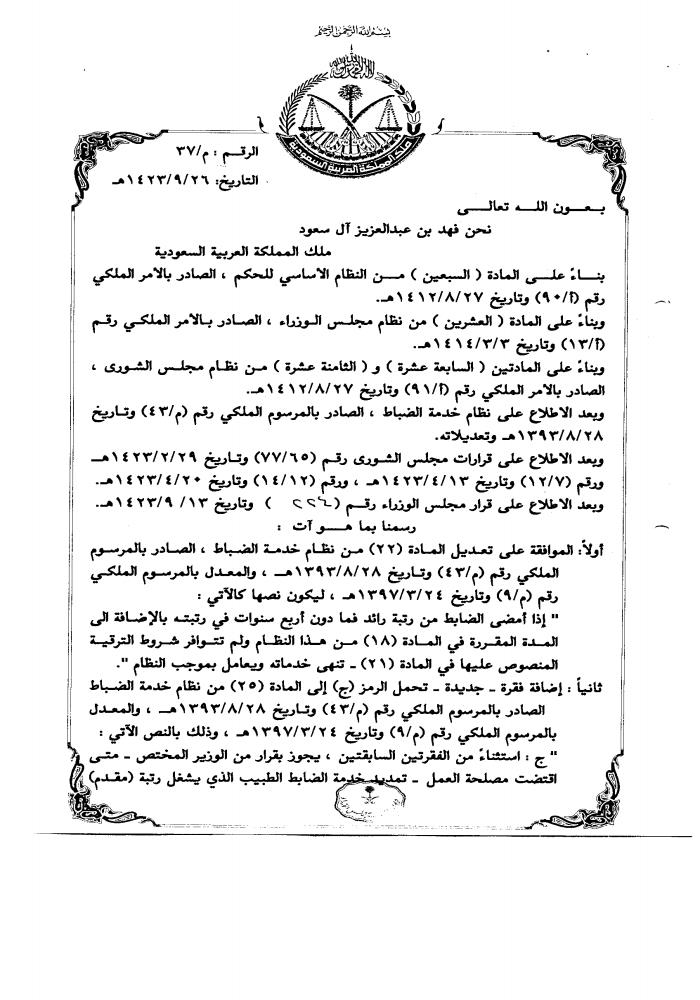 بسم الله الرحمن الرحيم
المملكة العربية السعودية
الرقم : م/٣٧
التاريخ: ١٤٢٣/٩/٢٦هـ
بعون الله تعالى
نحن فهد بن عبدالعزيز آل سعود
ملك المملكة العربية السعودية
بناءً على المادة ( السبعين ) من النظام الأساسي للحكم ، الصادر بالأمر الملكي
رقم (أ/٩٠) وتاريخ ١٤١٢/٨/٢٧هـ.
وبناءً على المادة ( العشرين ) من نظام مجلس الوزراء ، الصادر بالأمر الملكي رقم
(أ/١٣) وتاريخ ١٤١٤/٣/٣هـ.
وبناءً على المادتين ( السابعة عشرة ) و ( الثامنة عشرة ) من نظام مجلس الشورى ،
الصادر بالأمر الملكي رقم (أ/٩١) وتاريخ ١٤١٢/٨/٢٧هـ.
وبعد الاطلاع على نظام خدمة الضباط ، الصادر بالمرسوم الملكي رقم (م/٤٣) وتاريخ
١٣٩٣/٨/٢٨هـ وتعديلاته.
وبعد الاطلاع على قرارات مجلس الشورى رقم (٧٧/٦٥) وتاريخ ١٤٢٣/٢/٢٩هـ
ورقم (١٢/٧) وتاريخ ١٤٢٣/٤/١٣هـ ، ورقم (١٤/١٢) وتاريخ ١٤٢٣/٤/٢٠هـ.
وبعد الاطلاع على قرار مجلس الوزراء رقم ( ٢٢٦ ) وتاريخ ١٤٢٣/٩/١٣هـ.
رسمنا بما هو آت :
أولاً: الموافقة على تعديل المادة (٢٢) من نظام خدمة الضباط ، الصادر بالمرسوم
الملكي رقم (م/٤٣) وتاريخ ١٣٩٣/٨/٢٨هـ ، والمعدل بالمرسوم الملكي
رقم (م/٩) وتاريخ ١٣٩٧/٣/٢٤هـ ، ليكون نصها كالآتي :
" إذا أمضى الضابط من رتبة رائد فما دون أربع سنوات في رتبته بالإضافة الى
المدة المقررة في المادة (١٨) من هذا النظام ولم تتوافر شروط الترقية
المنصوص عليها في المادة (٢١) ـ تنهى خدماته ويعامل بموجب النظام ".
ثانياً : إضافة فقرة ـ جديدة ـ تحمل الرمز (ج) إلى المادة (٢٥) من نظام خدمة الضباط
الصادر بالمرسوم الملكي رقم (م/٤٣) وتاريخ ١٣٩٣/٨/٢٨هـ ، والمعدل
بالمرسوم الملكي رقم (م/٩) وتاريخ ١٣٩٧/٣/٢٤هـ ، وذلك بالنص الآتي :
" ج : استثناءً من الفقرتين السابقتين ، يجوز بقرار من الوزير المختص ـ متى
اقتضت مصلحة العمل ـ تمديد خدمة الضابط الطبيب الذي يشغل رتبة (مقدم)